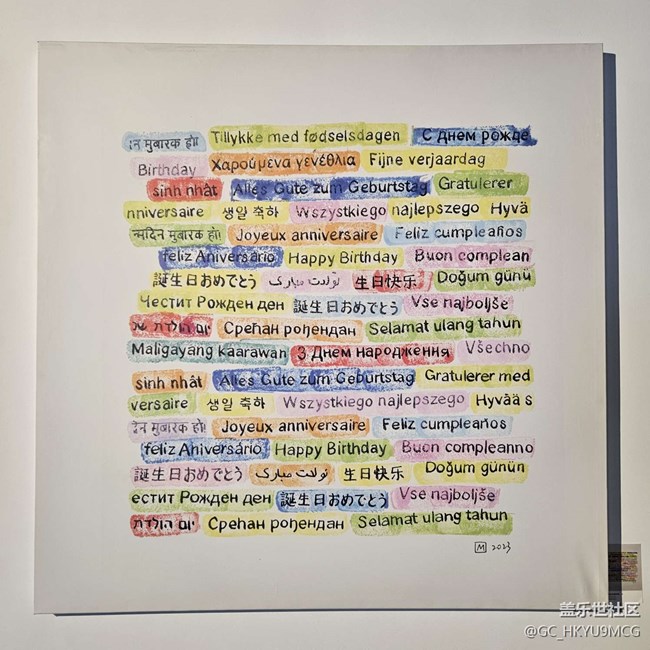 न मुबारक हो! Tillykke med fødselsdagen С днем рожде
Birthday Χαρούμενα γενέθλια Fijne verjaardag
sinh nhât Alles Gute zum Geburtstag Gratulerer
nniversaire 생일 축하 Wszystkiego najlepszego Hyvä
न्मदिन मुबारक हो! Joyeux anniversaire Feliz cumpleaños
feliz Aniversário Happy Birthday Buon complean
誕生日おめでとう تولدت مبارک 生日快乐 Doğum günü
Честит Рожден ден 誕生日おめでとう Vse najboljše
יום הולדת של Срећан рођендан Selamat ulang tahun
Maligayang kaarawan З Днем народження Všechno
sinh nhât Alles Gute zum Geburtstag Gratulerer med
versaire 생일 축하 Wszystkiego najlepszego Hyvää s
देन मुबारक हो! Joyeux anniversaire Feliz cumpleaños
feliz Aniversário Happy Birthday Buon compleanno
誕生日おめでとう تولدت مبارک 生日快乐 Doğum günün
естит Рожден ден 誕生日おめでとう Vse najboljše
יום הולדת Срећан рођендан Selamat ulang tahun
M 2023
盖乐世社区
@GC_HKYU9MCG